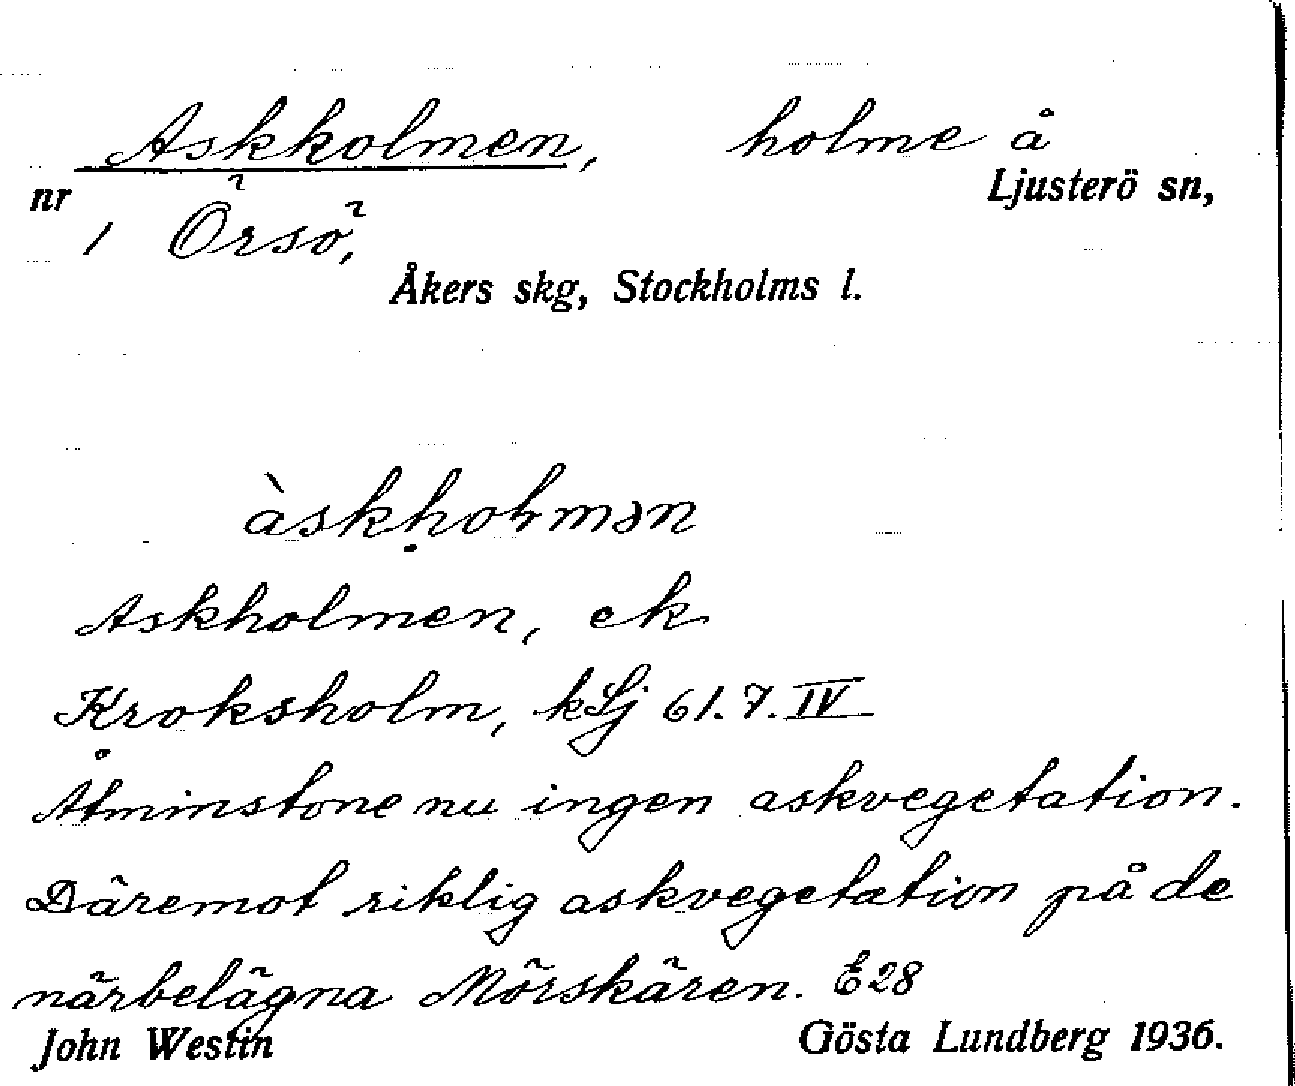 Askholmen, holme å
nr Ljusterö sn,
1 Örsö,
Åkers skg, Stockholms l.
àskḥoƚmən
Askholmen, ek
Kroksholm, kLj 61.7.IV
Åtminstone nu ingen askvegetation.
Däremot riklig askvegetation på de
närbelägna Mörskären. E28
John Westin Gösta Lundberg 1936.